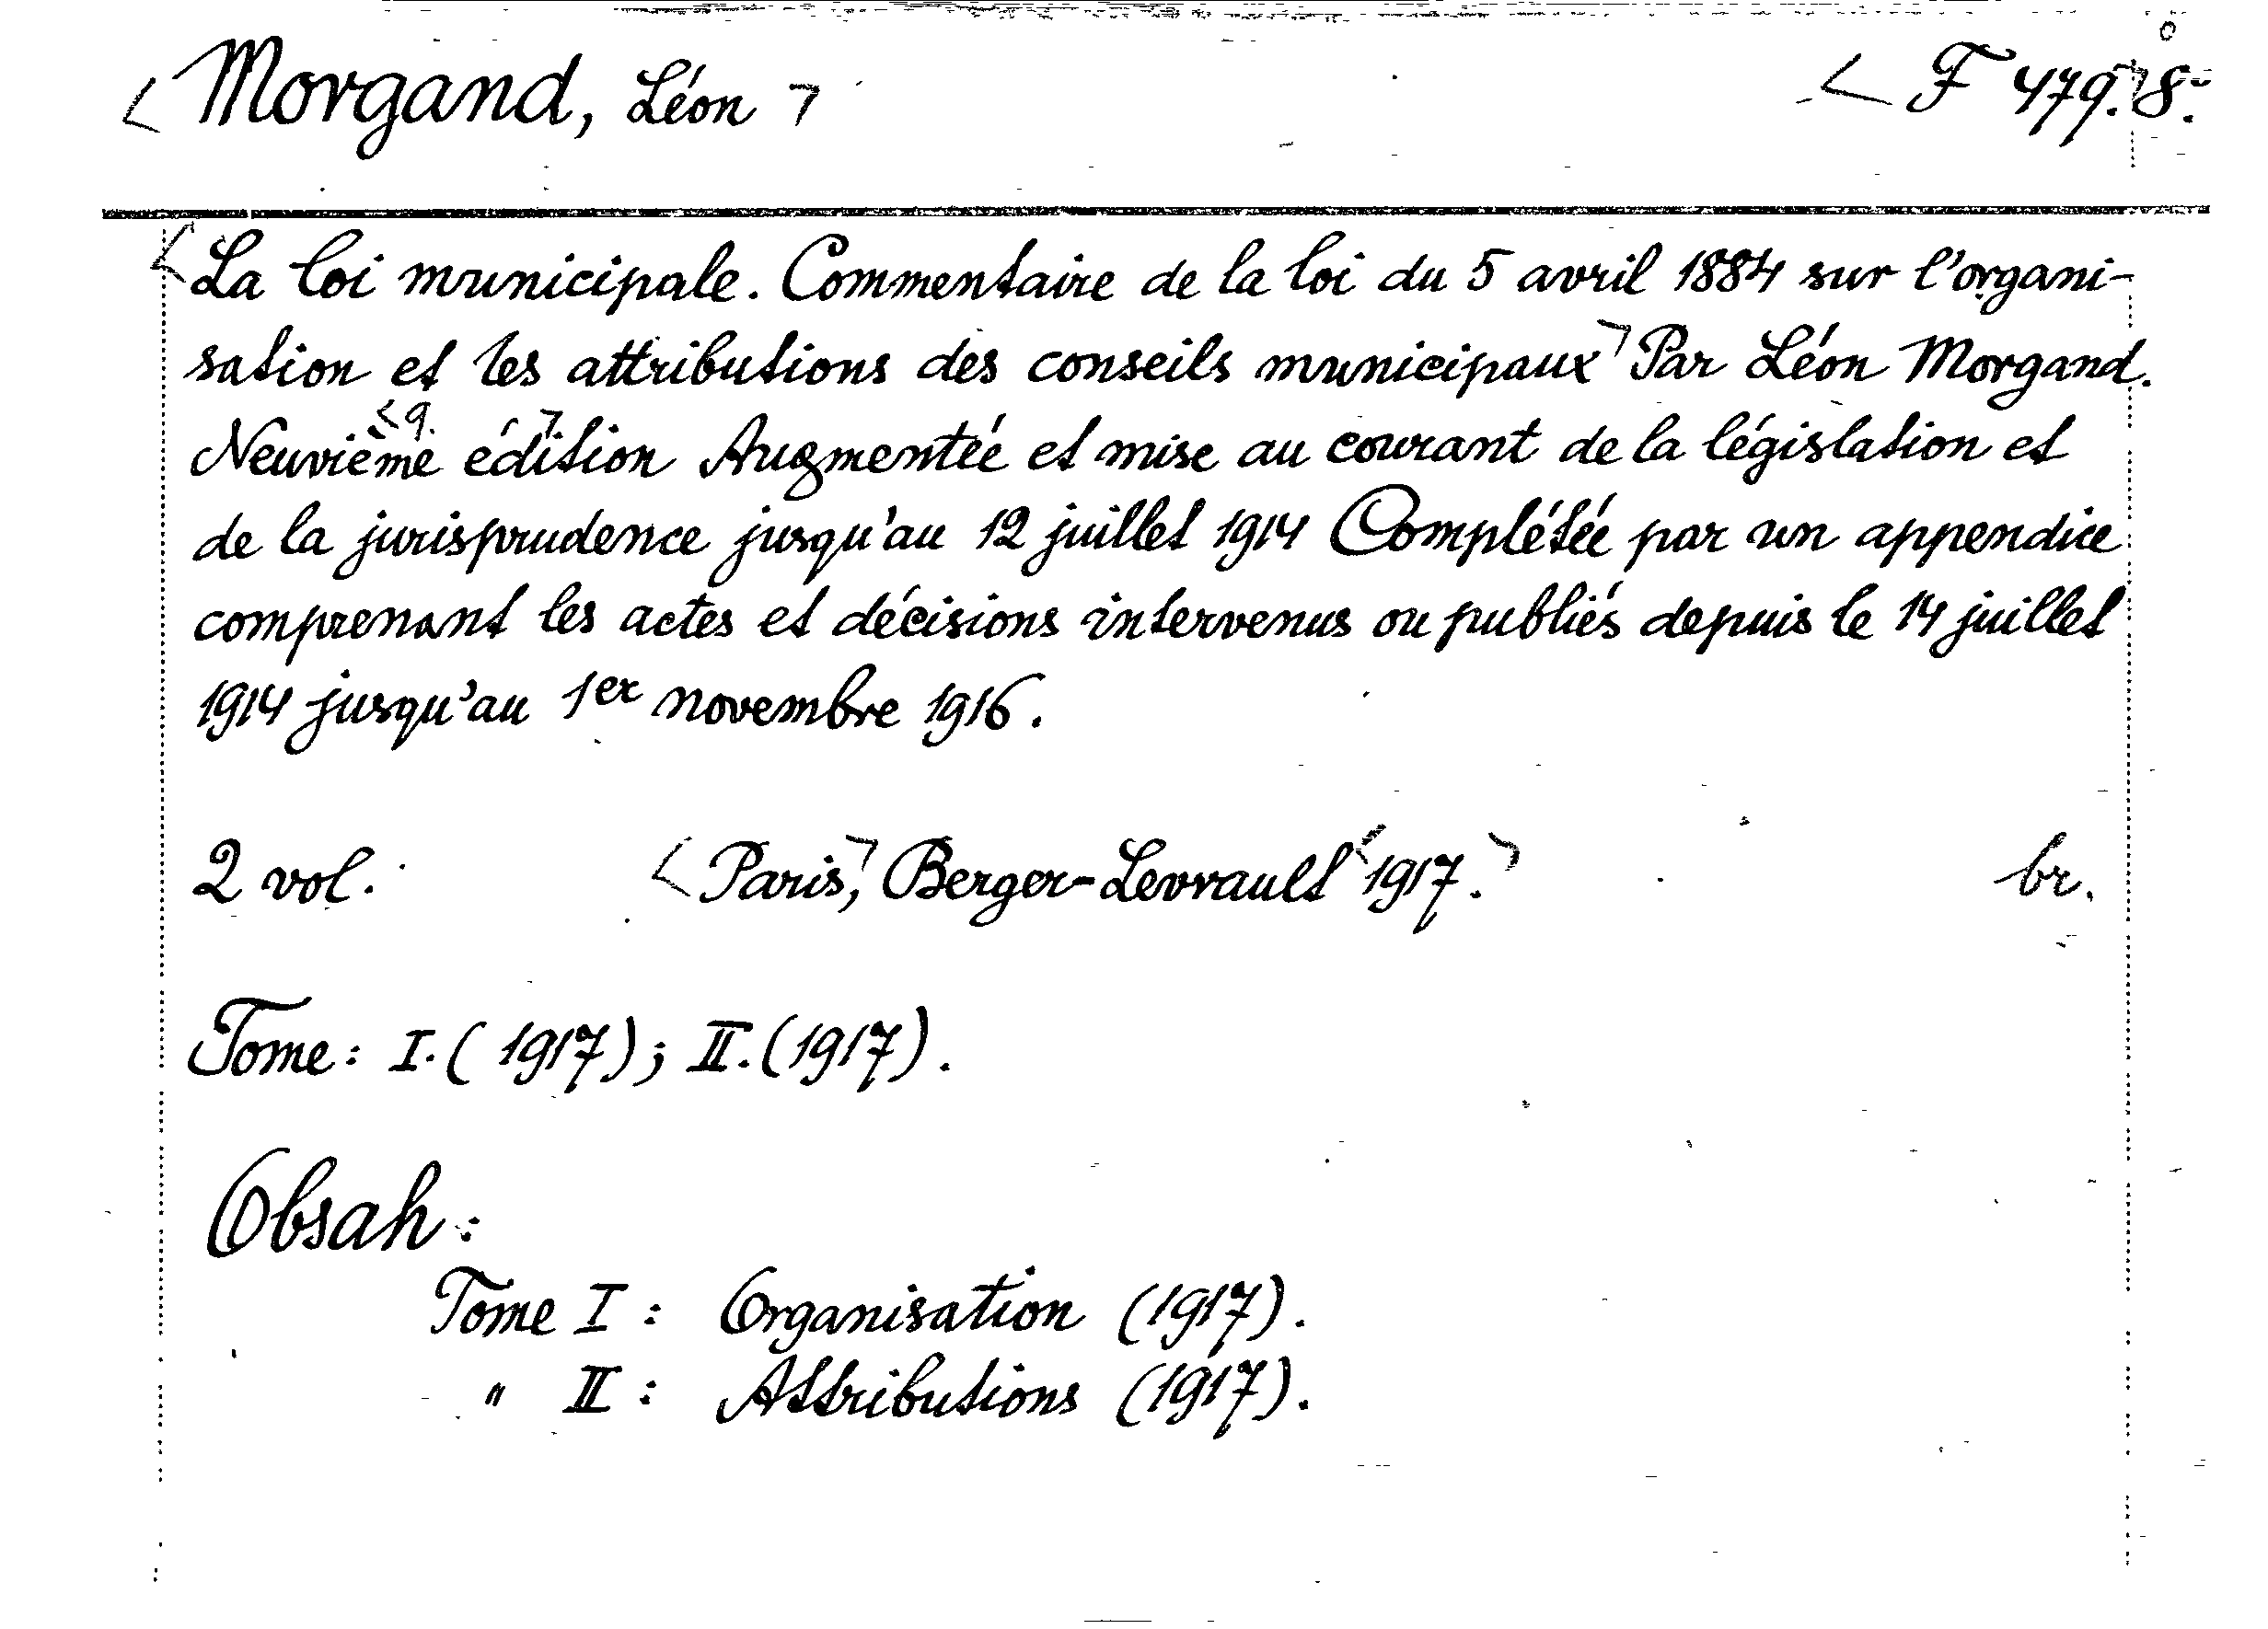 Morgand, Léon
F 479. 8°.
La loi municipale. Commentaire de la loi du 5 avril 1884 sur l'organi-
sation et les attributions des conseils municipaux Par Léon Morgand.
9.
Neuvième édition Augmentée et mise au courant de la législation et
de la jurisprudence jusqu'au 12 juillet 1914 Complétée par un appendice
comprenant les actes et décisions intervenus ou publiés depuis le 14 juillet
1914 jusqu'au 1er novembre 1916.
2 vol. Paris, Berger-Levrault 1917. br.
Tome: I. (1917); II. (1917).
Obsah:
Tome I: Organisation (1917).
" II: Attributions (1917).